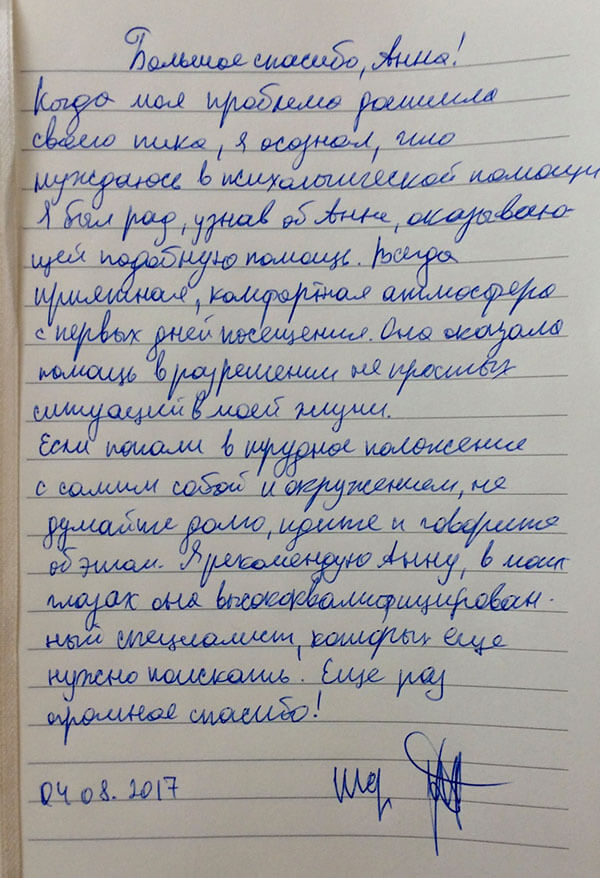 Большое спасибо, Анна!
Когда моя проблема достигла
своего пика, я осознал, что
нуждаюсь в психологической помощи
Я был рад, узнав об Анне, оказываю-
щей подобную помощь. Всегда
приятная, комфортная атмосфера
с первых дней посещения. Она оказала
помощь в разрешении не простых
ситуаций в моей жизни.
Если попали в трудное положение
с самим собой и окружением, не
думайте долго, идите и говорите
об этом. Я рекомендую Анну, в моих
глазах она высококвалифицирован-
ный специалист, которых еще
нужно поискать. Еще раз
огромное спасибо!
04 08. 2017